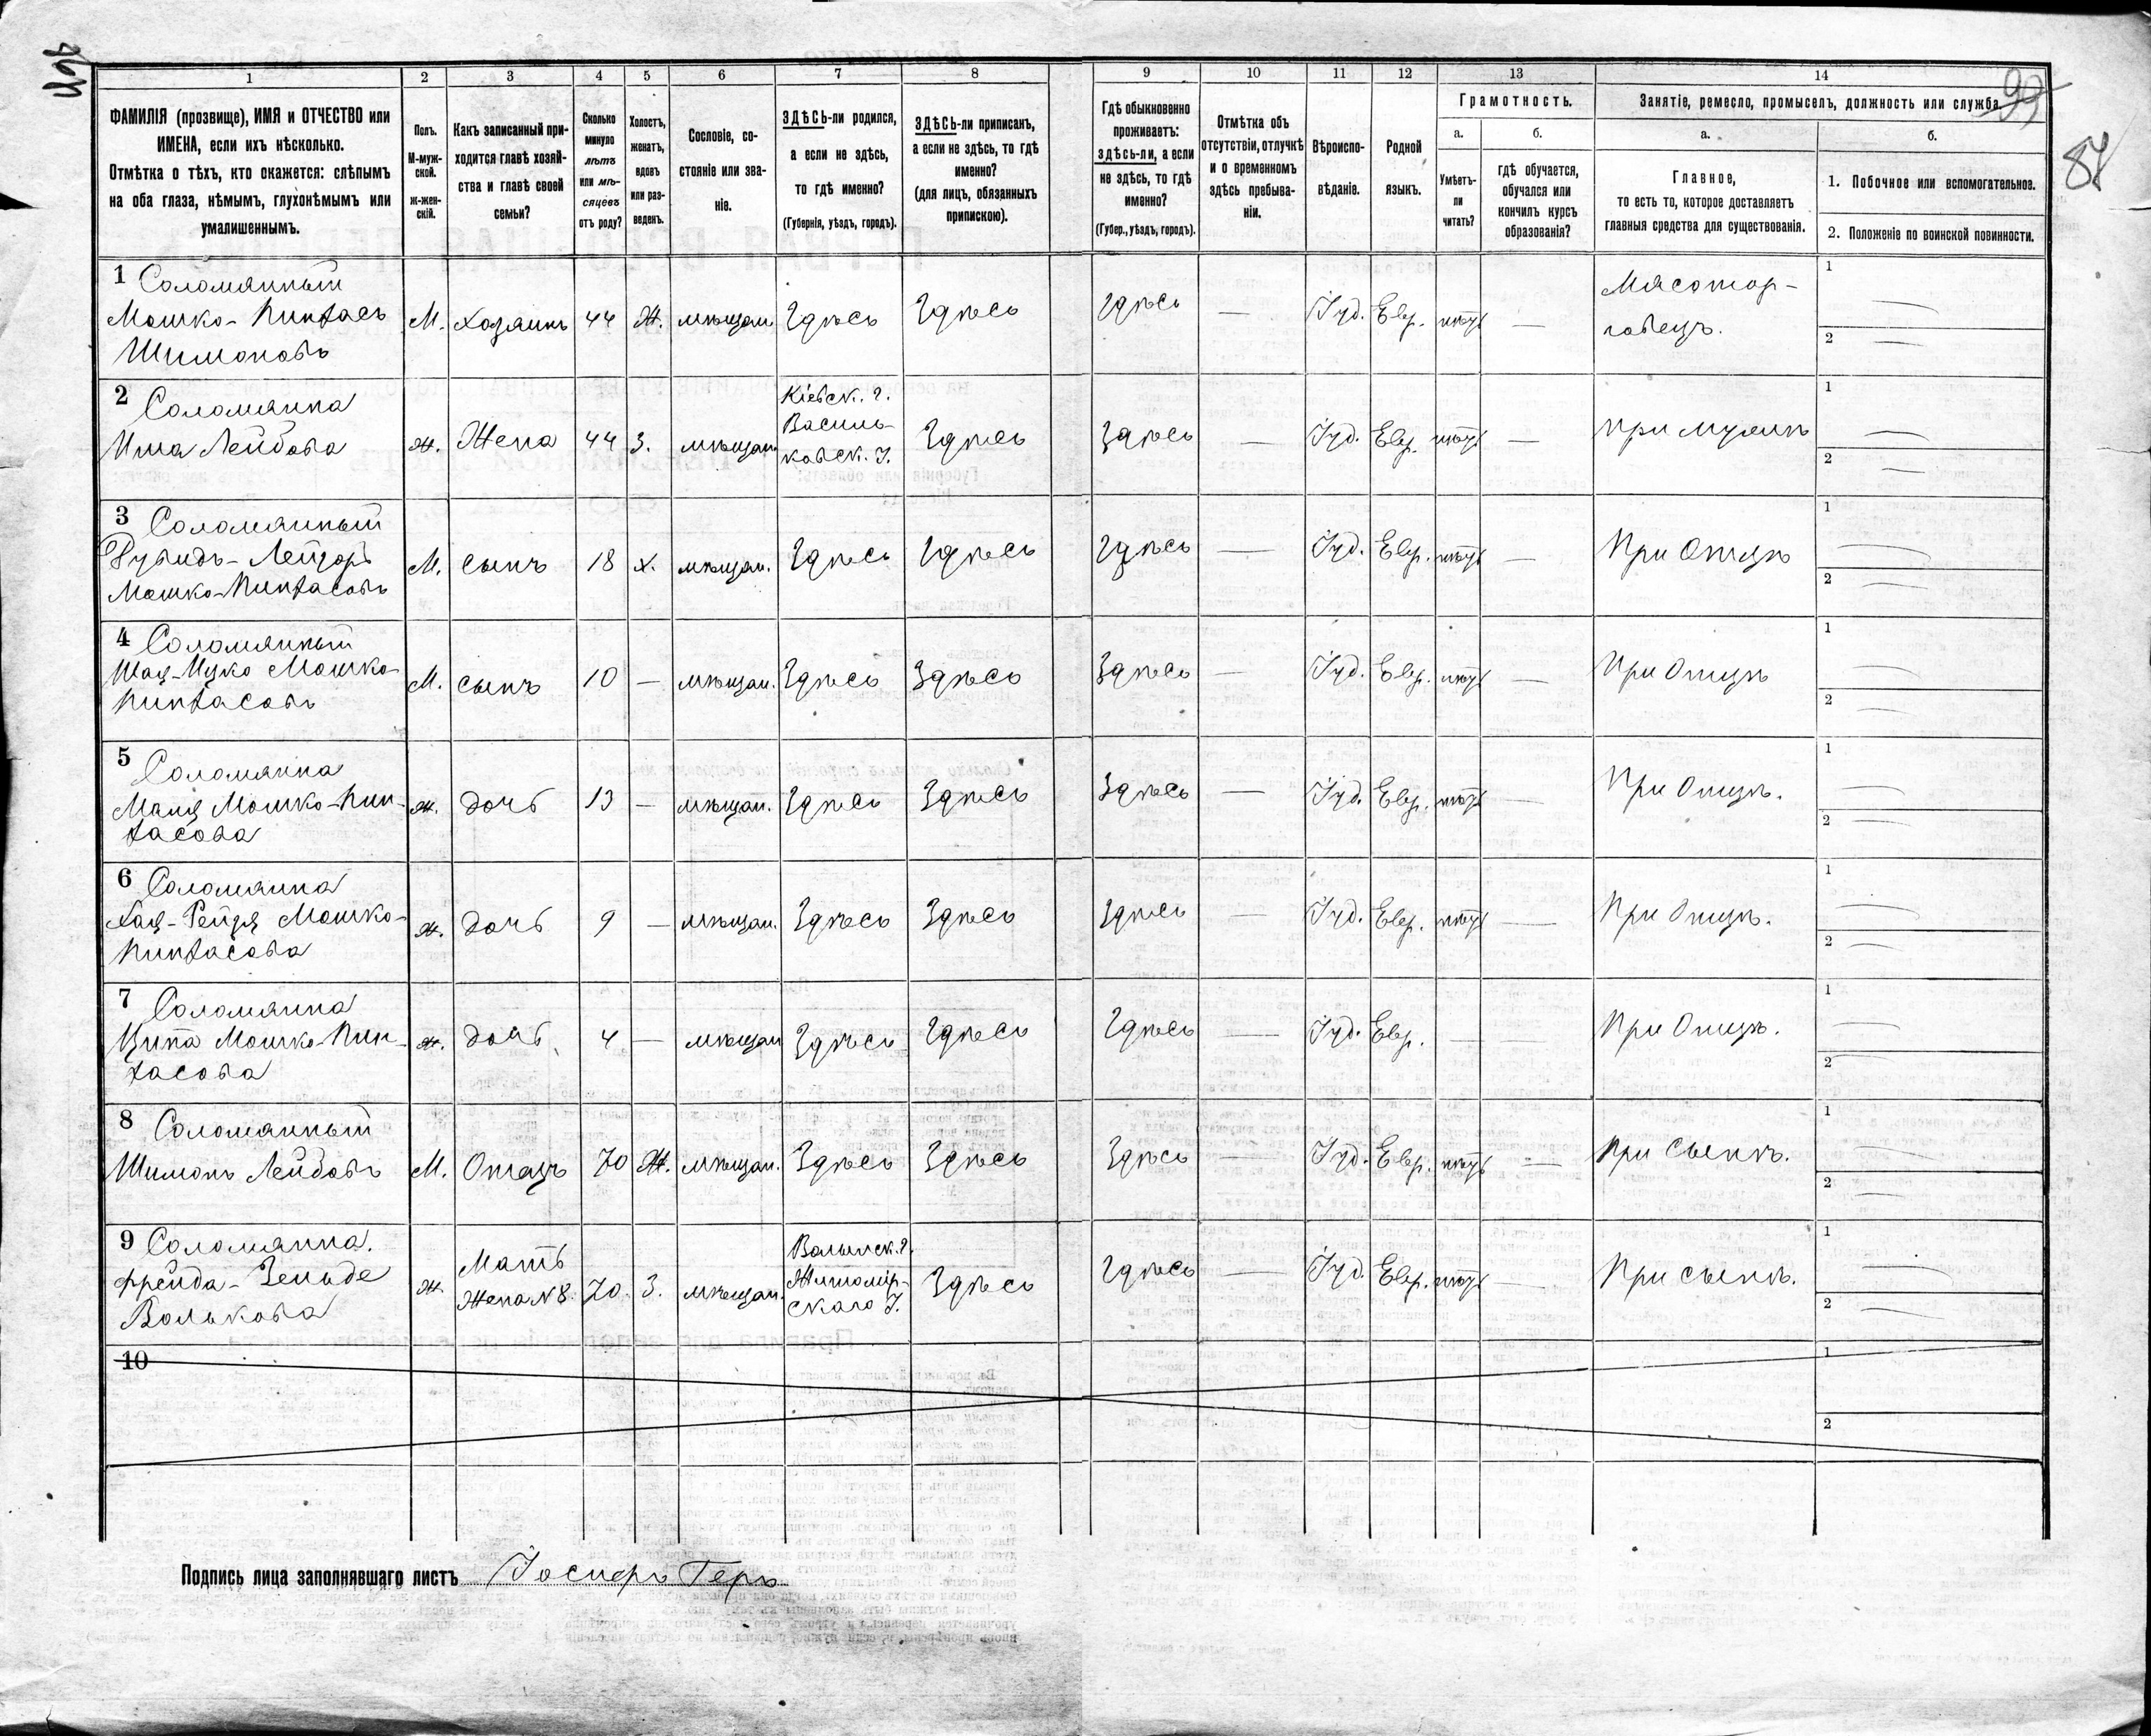 99
87
1 2 3 4 5 6 7 8 9 10 11 12 13 14
ФАМИЛІЯ (прозвище), ИМЯ и ОТЧЕСТВО или
ИМЕНА, если ихъ нѣсколько.
Отмѣтка о тѣхъ, кто окажется: слѣпымъ
на оба глаза, нѣмымъ, глухонѣмымъ или
умалишеннымъ.
Полъ.
М-муж-
ской.
Ж-жен-
скій.
Какъ записанный при-
ходится главѣ хозяй-
ства и главѣ своей
семьи?
Сколько
минуло
лѣтъ
или мѣ-
сяцевъ
отъ роду?
Холостъ,
женатъ,
вдовъ
или раз-
веденъ.
Сословіе, со-
стояніе или зва-
ніе.
ЗДѢСЬ-ли родился,
а если не здѣсь,
то гдѣ именно?
(Губернія, уѣздъ, городъ).
ЗДѢСЬ-ли приписанъ,
а если не здѣсь, то гдѣ
именно?
(для лицъ, обязанныхъ
припискою).
Гдѣ обыкновенно
проживаетъ:
здѣсь-ли, а если
не здѣсь, то гдѣ
именно?
(Губер., уѣздъ, городъ).
Отмѣтка объ
отсутствіи, отлучкѣ
и о временномъ
здѣсь пребыва-
ніи.
Вѣроиспо-
вѣданіе.
Родной
языкъ.
Грамотность.
а.
Умѣетъ-
ли
читать?
б.
гдѣ обучается,
обучался или
кончилъ курсъ
образованія?
Занятіе, ремесло, промыселъ, должность или служба.
а.
Главное,
то есть то, которое доставляетъ
главныя средства для существованія.
б.
1. Побочное или вспомогательное.
2. Положеніе по воинской повинности.
1 Соломянный
Мошко-Пинхасъ
Шимоновъ
М. Хозяинъ 44 Ж. мѣщан. Здѣсь Здѣсь Здѣсь — Іуд. Евр. нѣтъ — Мясотор-
говецъ.
1 —
2 —
2 Соломянна
Има Лейбова
ж. Жена 44 З. мѣщан. Кіевск. г.
Василь-
ковск. У.
Здѣсь Здѣсь — Іуд. Евр. нѣтъ — При мужѣ
1 —
2 —
3 Соломянный
Рувидъ-Лейзоръ
Мошко-Пинхасовъ
М. сынъ 18 х. мѣщан. Здѣсь Здѣсь Здѣсь — Іуд. Евр. нѣтъ — При Отцѣ
1 —
2 —
4 Соломянный
Шая-Ицко Мошко-
Пинхасовъ
М. сынъ 10 — мѣщан. Здѣсь Здѣсь Здѣсь — Іуд. Евр. нѣтъ — При Отцѣ
1 —
2 —
5 Соломянна
Маня Мошко-Пин-
хасова
ж. дочь 13 — мѣщан. Здѣсь Здѣсь Здѣсь — Іуд. Евр. нѣтъ — При Отцѣ.
1 —
2 —
6 Соломянна
Хая-Рейзя Мошко-
Пинхасова
ж. дочь 9 — мѣщан. Здѣсь Здѣсь Здѣсь — Іуд. Евр. нѣтъ — При Отцѣ.
1 —
2 —
7 Соломянна
Ципа Мошко-Пин-
хасова
ж. дочь 4 — мѣщан Здѣсь Здѣсь Здѣсь — Іуд. Евр. — — При Отцѣ.
1 —
2 —
8 Соломянный
Шимонъ Лейбовъ
М. Отецъ 70 Ж. мѣщан. Здѣсь Здѣсь Здѣсь — Іуд. Евр. нѣтъ — При сынѣ.
1 —
2 —
9 Соломянна.
Фрейда-Зельде
Волькова
ж. Мать
Жена №8.
70. З. мѣщан. Волынск. г.
Житомір-
скаго У.
Здѣсь Здѣсь — Іуд. Евр. нѣтъ — При сынѣ.
1 —
2 —
10
1
2
Подпись лица заполнявшаго листъ Іосифъ Геръ